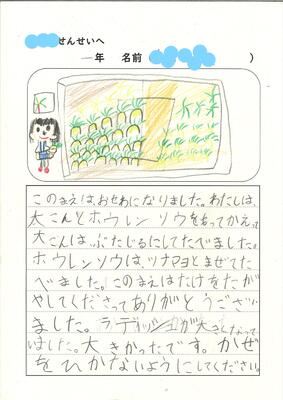 せんせいへ
一年 名前 ( )
このまえは、おせわになりました。わたしは、
大こんとホウレンソウをもってかえって
大こんは、ぶたじるにしてたべました。
ホウレンソウは、ツナマヨとまぜてた
べました。このまえはたけをたが
やしてくださってありがとうござい
ました。ラディッシュが大きくなって
いました。大きかったです。かぜ
をひかないようにしてください。